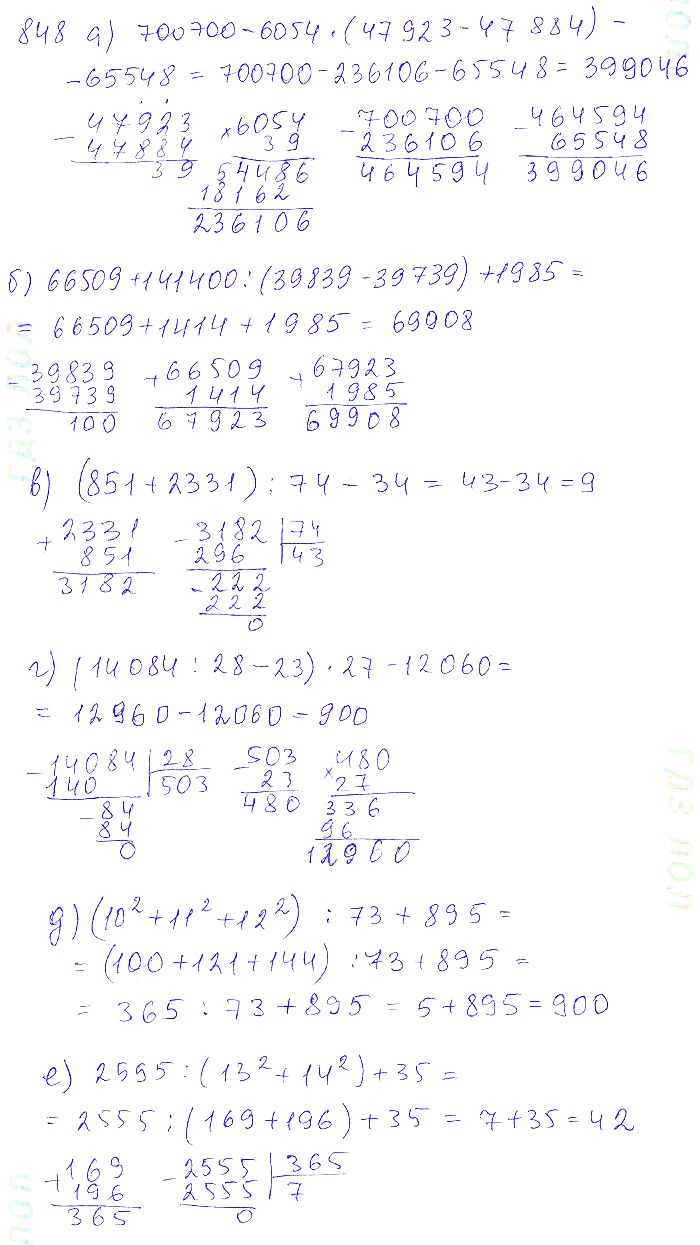 848 а) 700700-6054·(47923-47884)-
-65548 = 700700-236106-65548 = 399046
- 47923
47884
39
× 6054
39
54486
18162
236106
- 700700
236106
464594
- 464594
65548
399046
б) 66509+141400:(39839-39739)+1985 =
= 66509+1414+1985 = 69908
- 39839
39739
100
+ 66509
1414
67923
+ 67923
1985
69908
в) (851+2331):74-34 = 43-34=9
+ 2331
851
3182
- 3182 | 74
296 | 43
- 222
222
0
г) (14084:28-23)·27-12060=
= 12960-12060=900
- 14084 | 28
140 | 503
- 84
84
0
- 503
23
480
× 480
27
336
96
12960
д) (10²+11²+12²) : 73+895 =
= (100+121+144) :73+895 =
= 365 : 73+895 = 5+895=900
е) 2595:(13²+14²)+35=
= 2555:(169+196)+35 = 7+35=42
+ 169
196
365
- 2555 | 365
2555 | 7
0
гдз лол